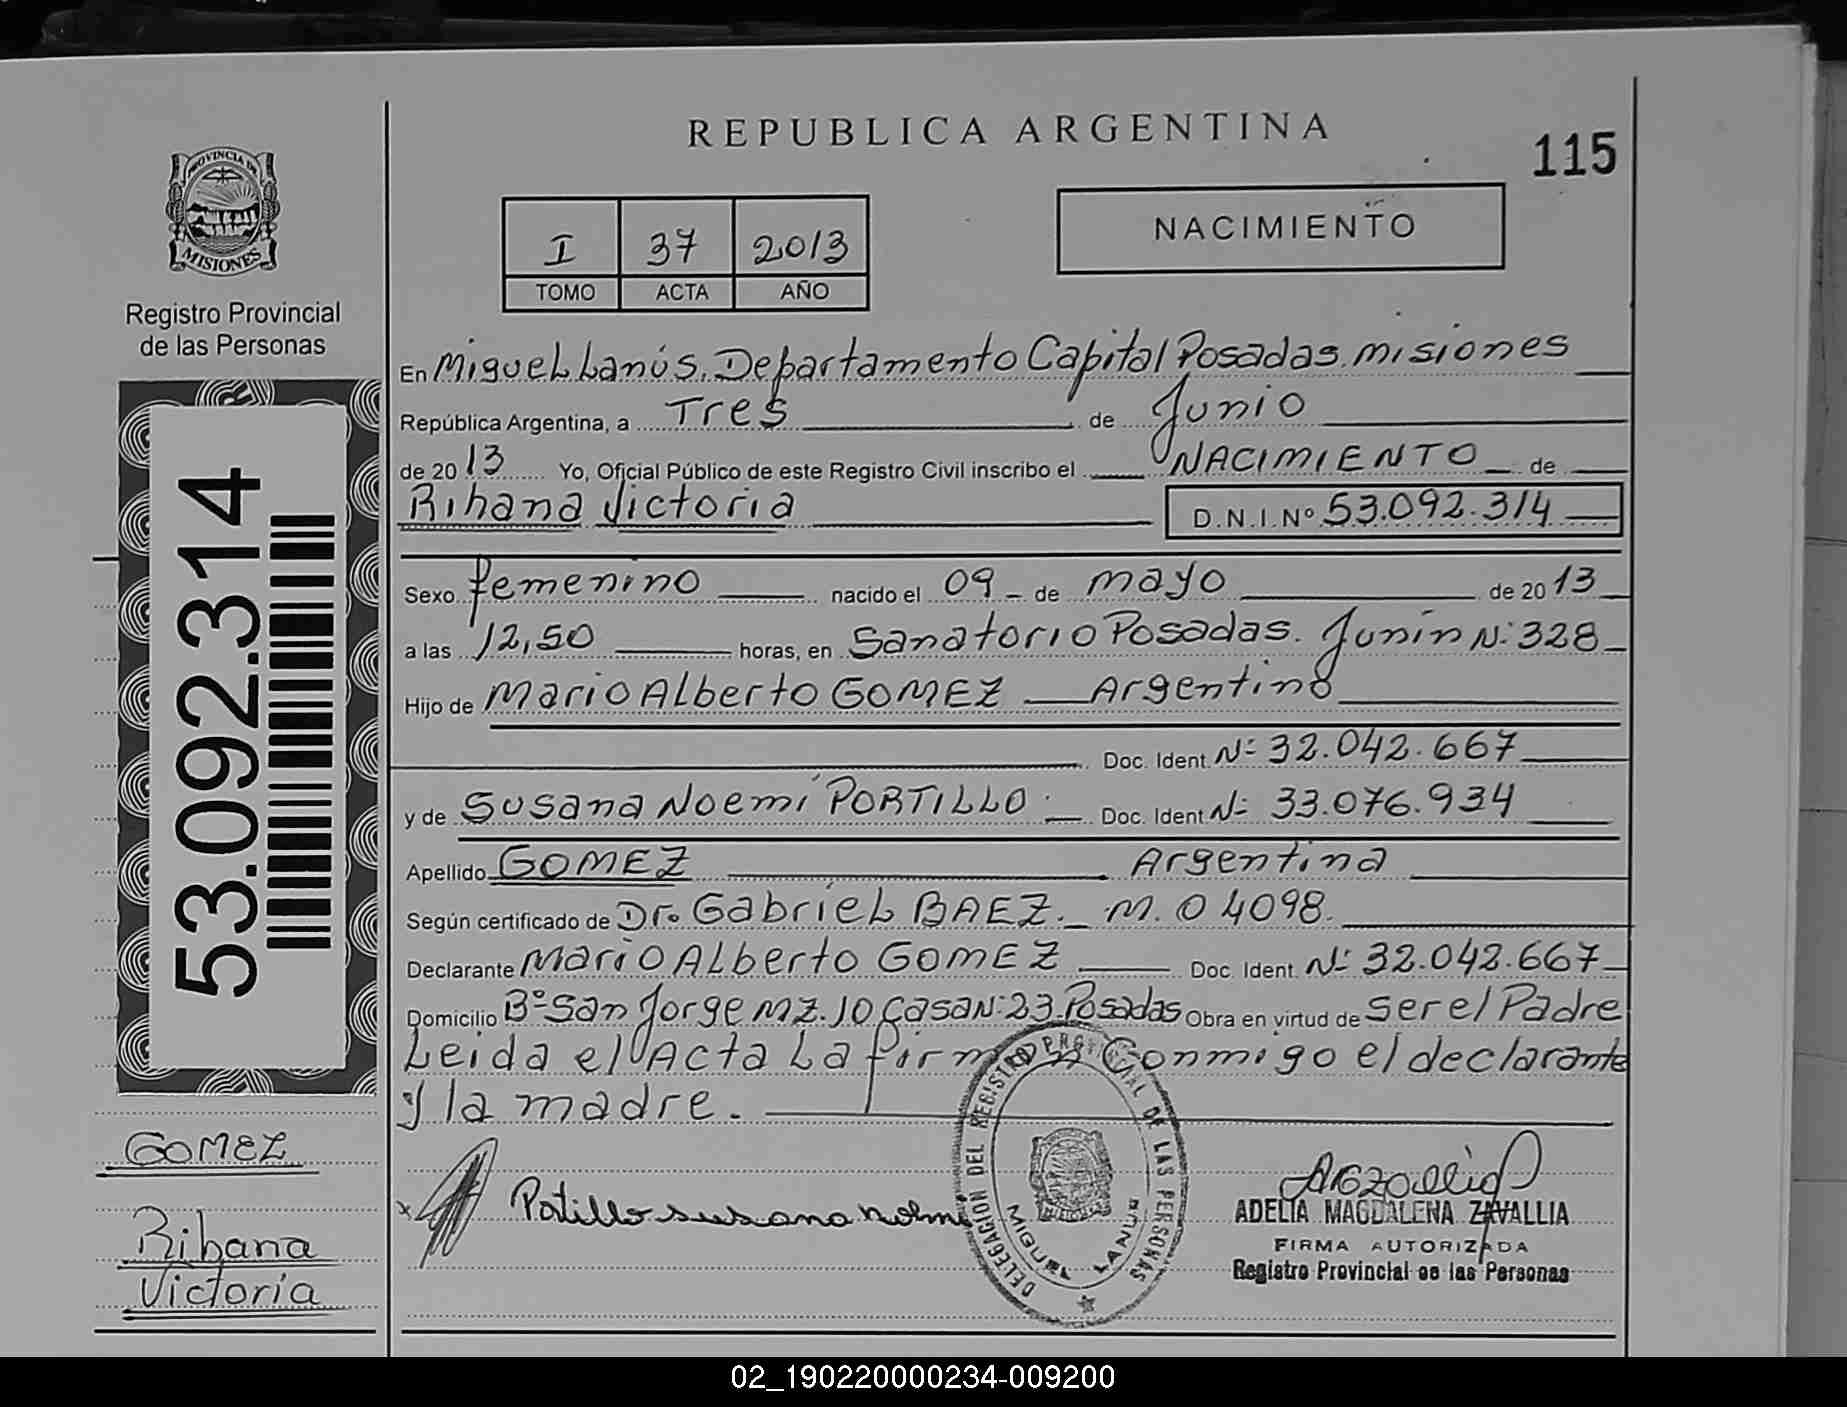 REPUBLICA ARGENTINA
115
PROVINCIA DE
MISIONES
Registro Provincial
de las Personas
I 37 2013
TOMO ACTA AÑO
NACIMIENTO
En Miguel Lanús. Departamento Capital Posadas. misiones
República Argentina, a Tres de Junio
de 2013 Yo, Oficial Público de este Registro Civil inscribo el NACIMIENTO de
Rihana Victoria D.N.I.Nº 53.092.314
Sexo femenino nacido el 09 de mayo de 2013
a las 12,50 horas, en Sanatorio Posadas. Junín N: 328
Hijo de Mario Alberto GOMEZ Argentino
Doc. Ident. Nº 32.042.667
y de Susana Noemí PORTILLO. Doc. Ident. Nº 33.076.934
Apellido GOMEZ Argentina
Según certificado de Dr. Gabriel BAEZ. M. 04098.
Declarante Mario Alberto GOMEZ Doc. Ident. Nº 32.042.667
Domicilio Bº San Jorge MZ. 10 Casa N: 23. Posadas Obra en virtud de ser el Padre
Leida el Acta La firman Conmigo el declarante
y la madre.
53.092.314
GOMEZ
Rihana
Victoria
Portillo susana noemi
DELEGACION DEL REGISTRO PROVINCIAL DE LAS PERSONAS
MIGUEL LANUS
ADELIA MAGDALENA ZAVALLIA
FIRMA AUTORIZADA
Registro Provincial de las Personas
02_190220000234-009200